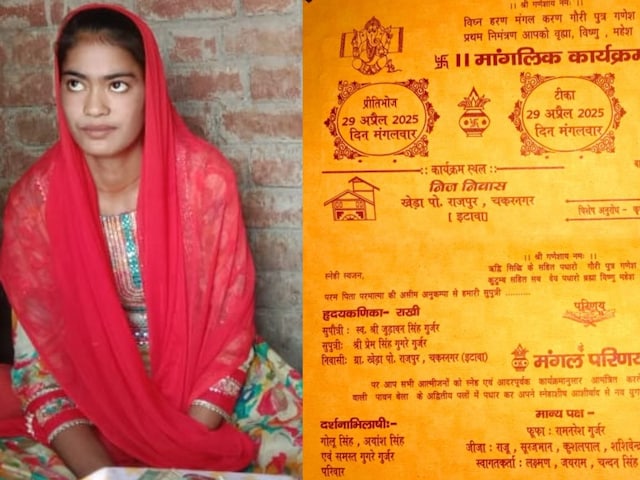 ।। श्री गणेशाय नमः ।।
विघ्न हरण मंगल करण गौरी पुत्र गणेश
प्रथम निमंत्रण आपको वृह्मा, विष्णु , महेश
।। मांगलिक कार्यक्रम
प्रीतिभोज
29 अप्रैल 2025
दिन मंगलवार
टीका
29 अप्रैल 2025
दिन मंगलवार
कार्यक्रम स्थल
निज निवास
खेड़ा पो. राजपुर , चकरनगर
[ इटावा ]
विशेष अनुरोध -
।। श्री गणेशाय नमः ।।
ऋद्धि सिद्धि के सहित पधारो गौरी पुत्र गणेश
कुटुम्ब सहित सब देव पधारो ब्रह्मा विष्णु महेश
स्नेही स्वजन,
परम पिता परमात्मा की असीम अनुकम्पा से हमारी सुपुत्री ..........
हृदयकणिका- राखी
सुपौत्री : स्व. श्री जुड़ावन सिंह गुर्जर
सुपुत्री: श्री प्रेम सिंह गुगरे गुर्जर
निवासी: ग्रा. खेड़ा पो. राजपुर , चकरनगर (इटावा)
परिणय
मंगल परिणय
पर आप सभी आत्मीजनों को स्नेह एवं आदरपूर्वक कार्यक्रमानुसार आमंत्रित करते
वाली पावन बेला के अद्वितीय पलों में पधार कर अपने स्नेहाशीष आशीर्वाद से नव
दर्शनाभिलाषी:-
गोलू सिंह , अयांश सिंह
एवं समस्त गुगरे गुर्जर
परिवार
मान्य पक्ष -
फूफा : रामनरेश गुर्जर
जीजा : राजू , सूरजभान , कुशलपाल , शशिवेन्द्र
स्वागतकर्ता : लक्ष्मण , जयराम , चन्दन सिंह